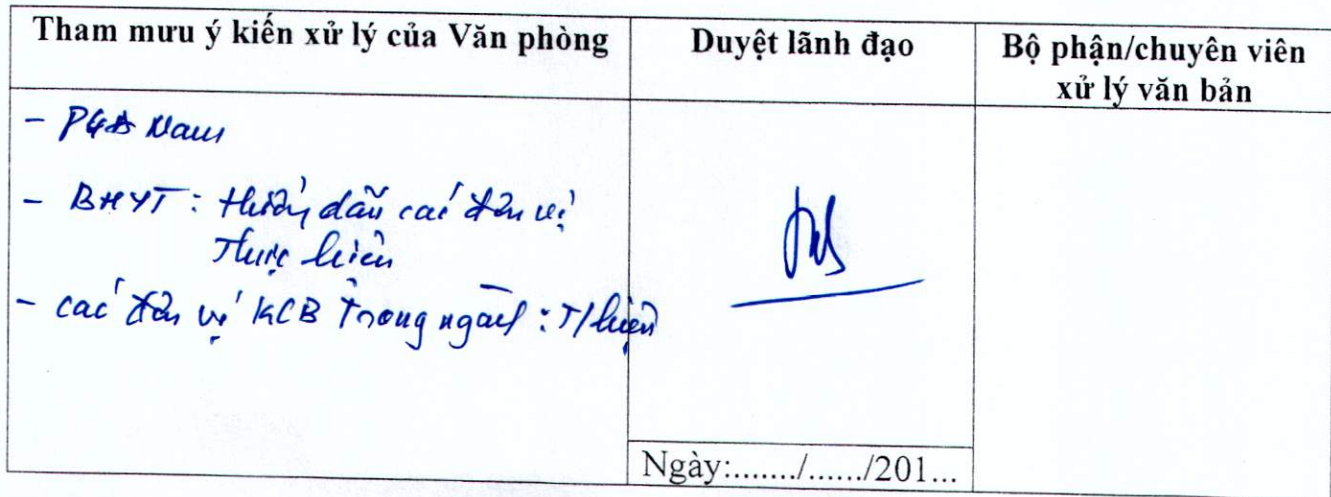 Tham mưu ý kiến xử lý của Văn phòng
Duyệt lãnh đạo
Bộ phận/chuyên viên
xử lý văn bản
- PGĐ Nam
- BHYT: Hướng dẫn các đơn vị
Thực hiện
- các đơn vị KCB Trong ngành: T/hiện
Ngày:......./....../201...